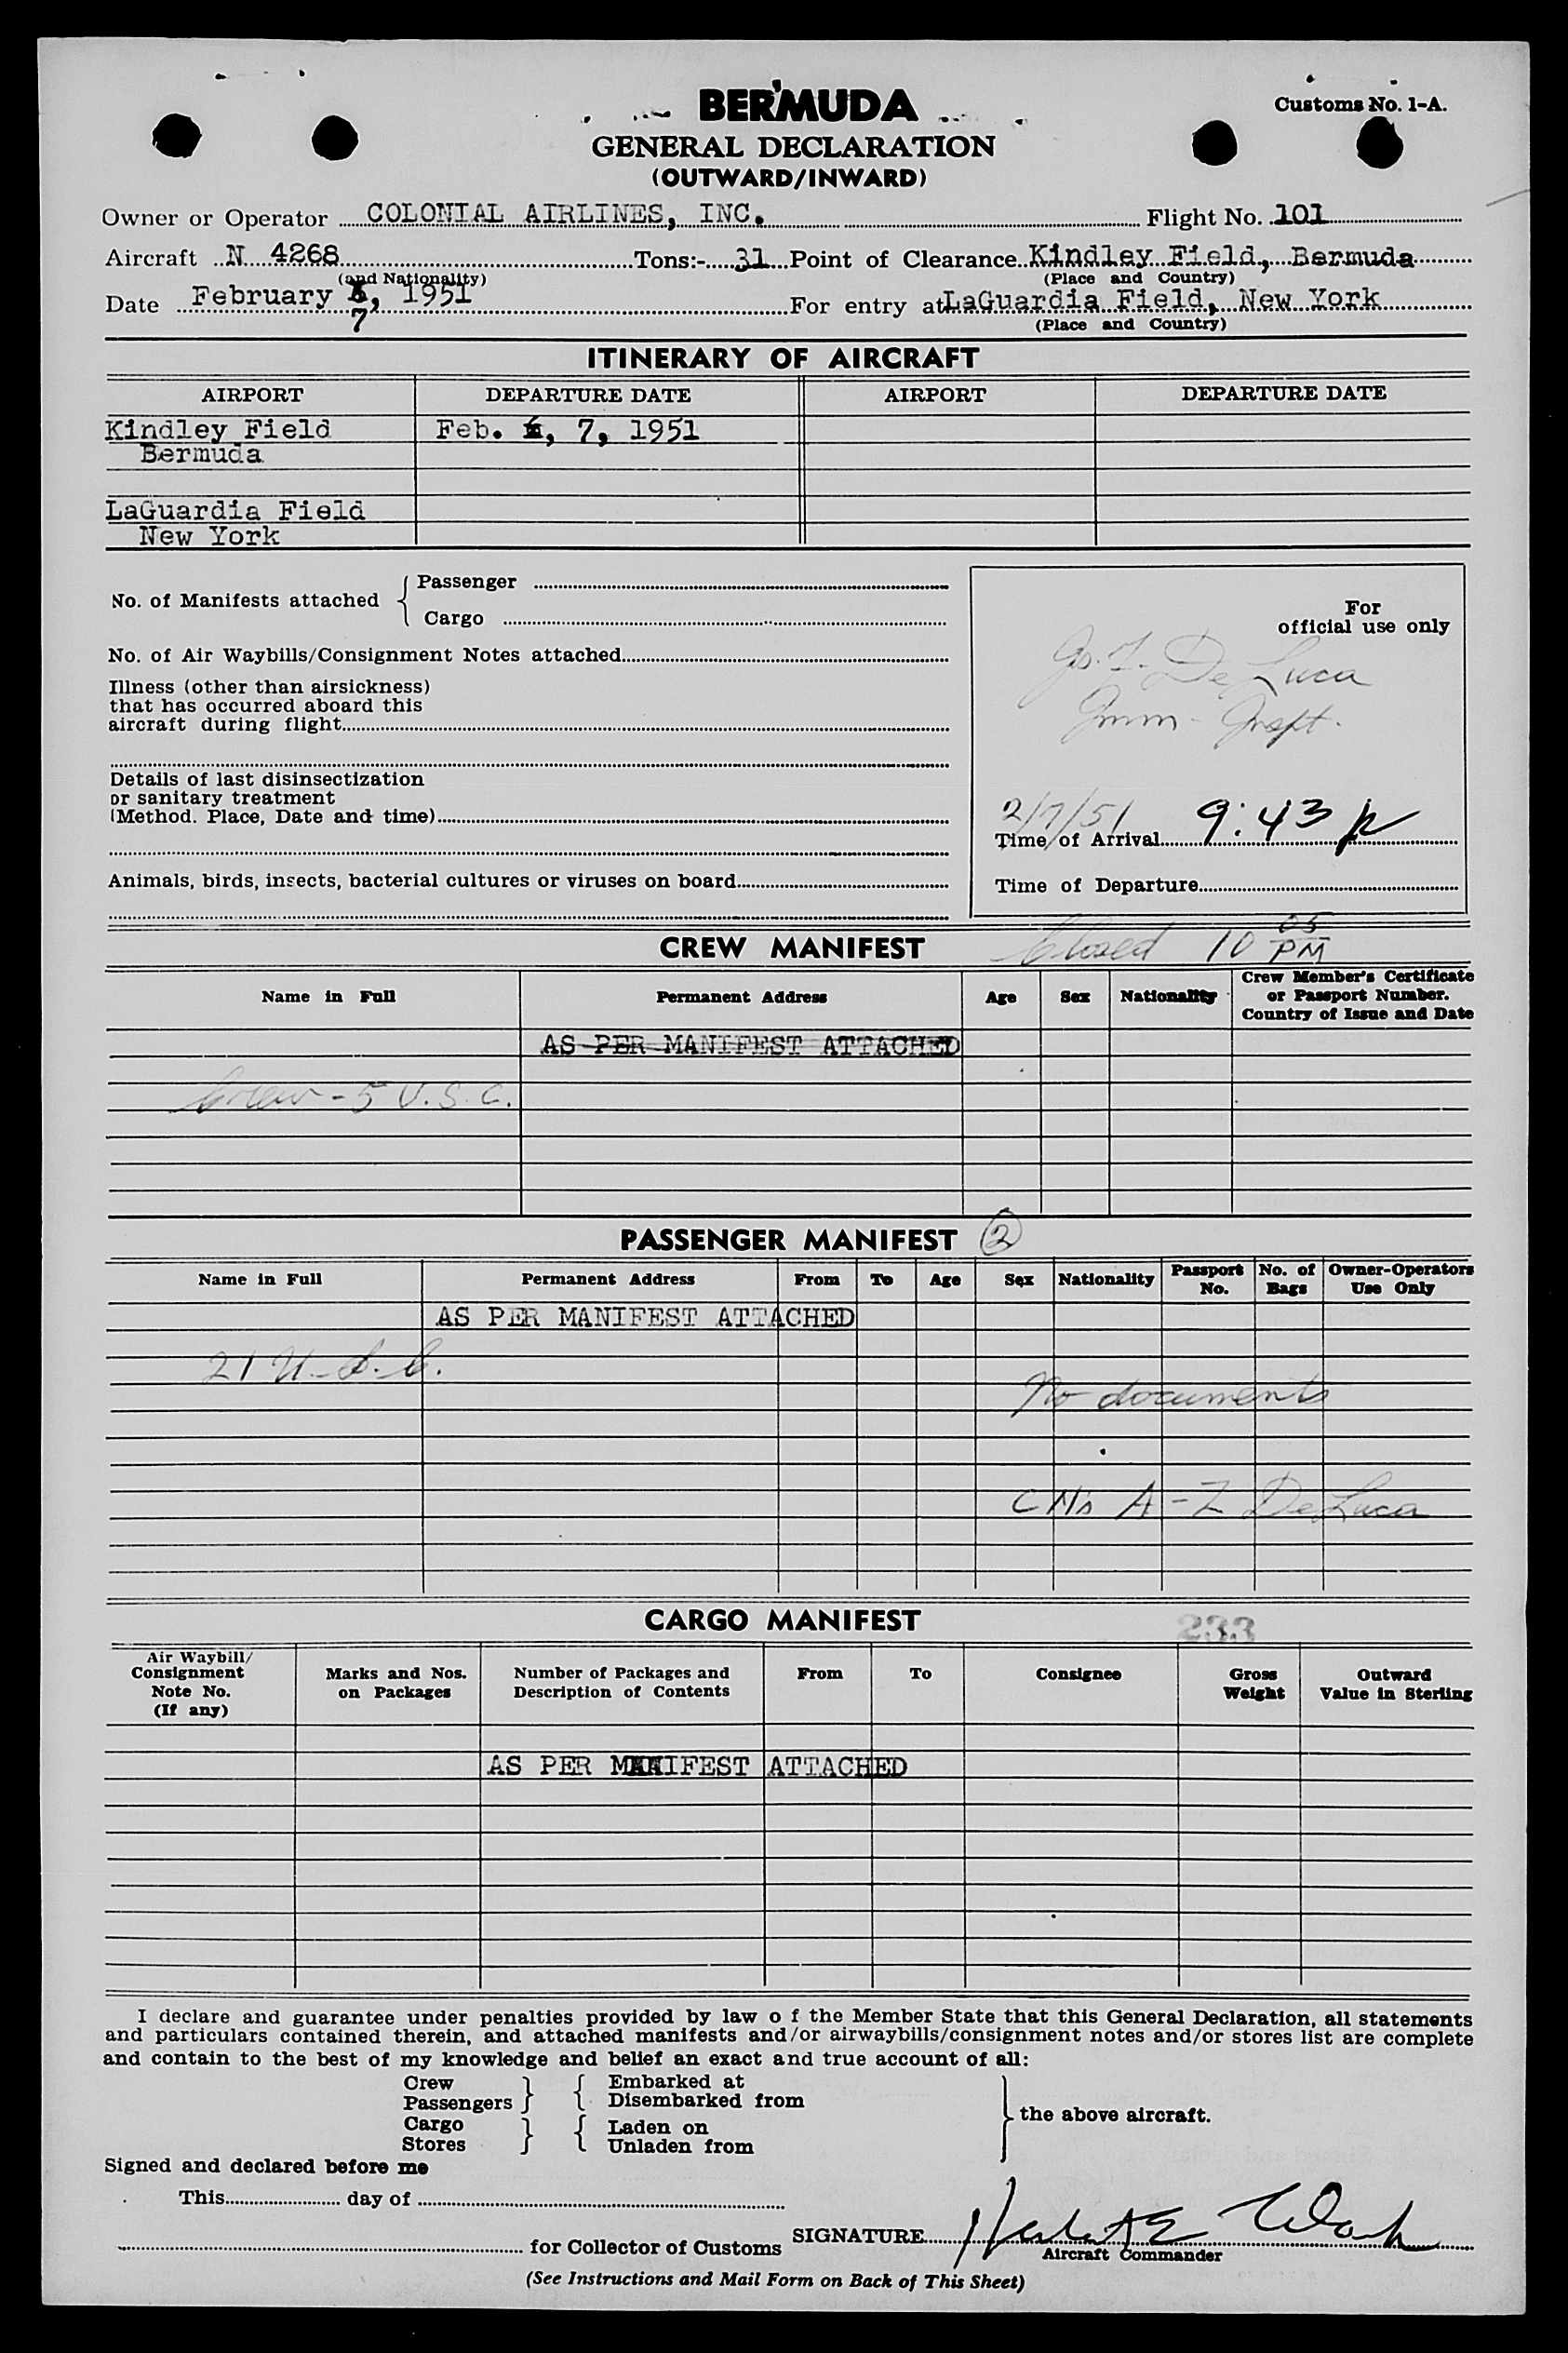 BERMUDA
Customs No. 1-A.
GENERAL DECLARATION
(OUTWARD/INWARD)
Owner or Operator COLONIAL AIRLINES, INC. Flight No. 101
Aircraft N 4268 Tons:- 31 Point of Clearance Kindley Field, Bermuda
(and Nationality) (Place and Country)
Date February 7, 1951 For entry at LaGuardia Field, New York
(Place and Country)
ITINERARY OF AIRCRAFT
AIRPORT DEPARTURE DATE AIRPORT DEPARTURE DATE
Kindley Field Feb. 6, 7, 1951
Bermuda
LaGuardia Field
New York
No. of Manifests attached { Passenger
Cargo
For
official use only
No. of Air Waybills/Consignment Notes attached
De Luca
Imm - Inspt.
Illness (other than airsickness)
that has occurred aboard this
aircraft during flight
Details of last disinsectization
or sanitary treatment
(Method. Place, Date and time)
2/7/51 9:43 p
Time of Arrival
Animals, birds, insects, bacterial cultures or viruses on board
Time of Departure
CREW MANIFEST Closed 10 05 PM
Name in Full Permanent Address Age Sex Nationality Crew Member's Certificate
or Passport Number.
Country of Issue and Date
AS PER MANIFEST ATTACHED
Crew - 5 U.S.C.
PASSENGER MANIFEST 2
Name in Full Permanent Address From To Age Sex Nationality Passport No. No. of Bags Owner-Operators Use Only
AS PER MANIFEST ATTACHED
21 U.S.C.
No documents
A-Z De Luca
CARGO MANIFEST 233
Air Waybill/
Consignment
Note No.
(If any)
Marks and Nos.
on Packages
Number of Packages and
Description of Contents
From To Consignee Gross
Weight
Outward
Value in Sterling
AS PER MANIFEST ATTACHED
I declare and guarantee under penalties provided by law o f the Member State that this General Declaration, all statements
and particulars contained therein, and attached manifests and/or airwaybills/consignment notes and/or stores list are complete
and contain to the best of my knowledge and belief an exact and true account of all:
Crew Embarked at
Passengers } { Disembarked from
the above aircraft.
Cargo Laden on
Stores } { Unladen from
Signed and declared before me
This day of
for Collector of Customs SIGNATURE
Aircraft Commander
(See Instructions and Mail Form on Back of This Sheet)